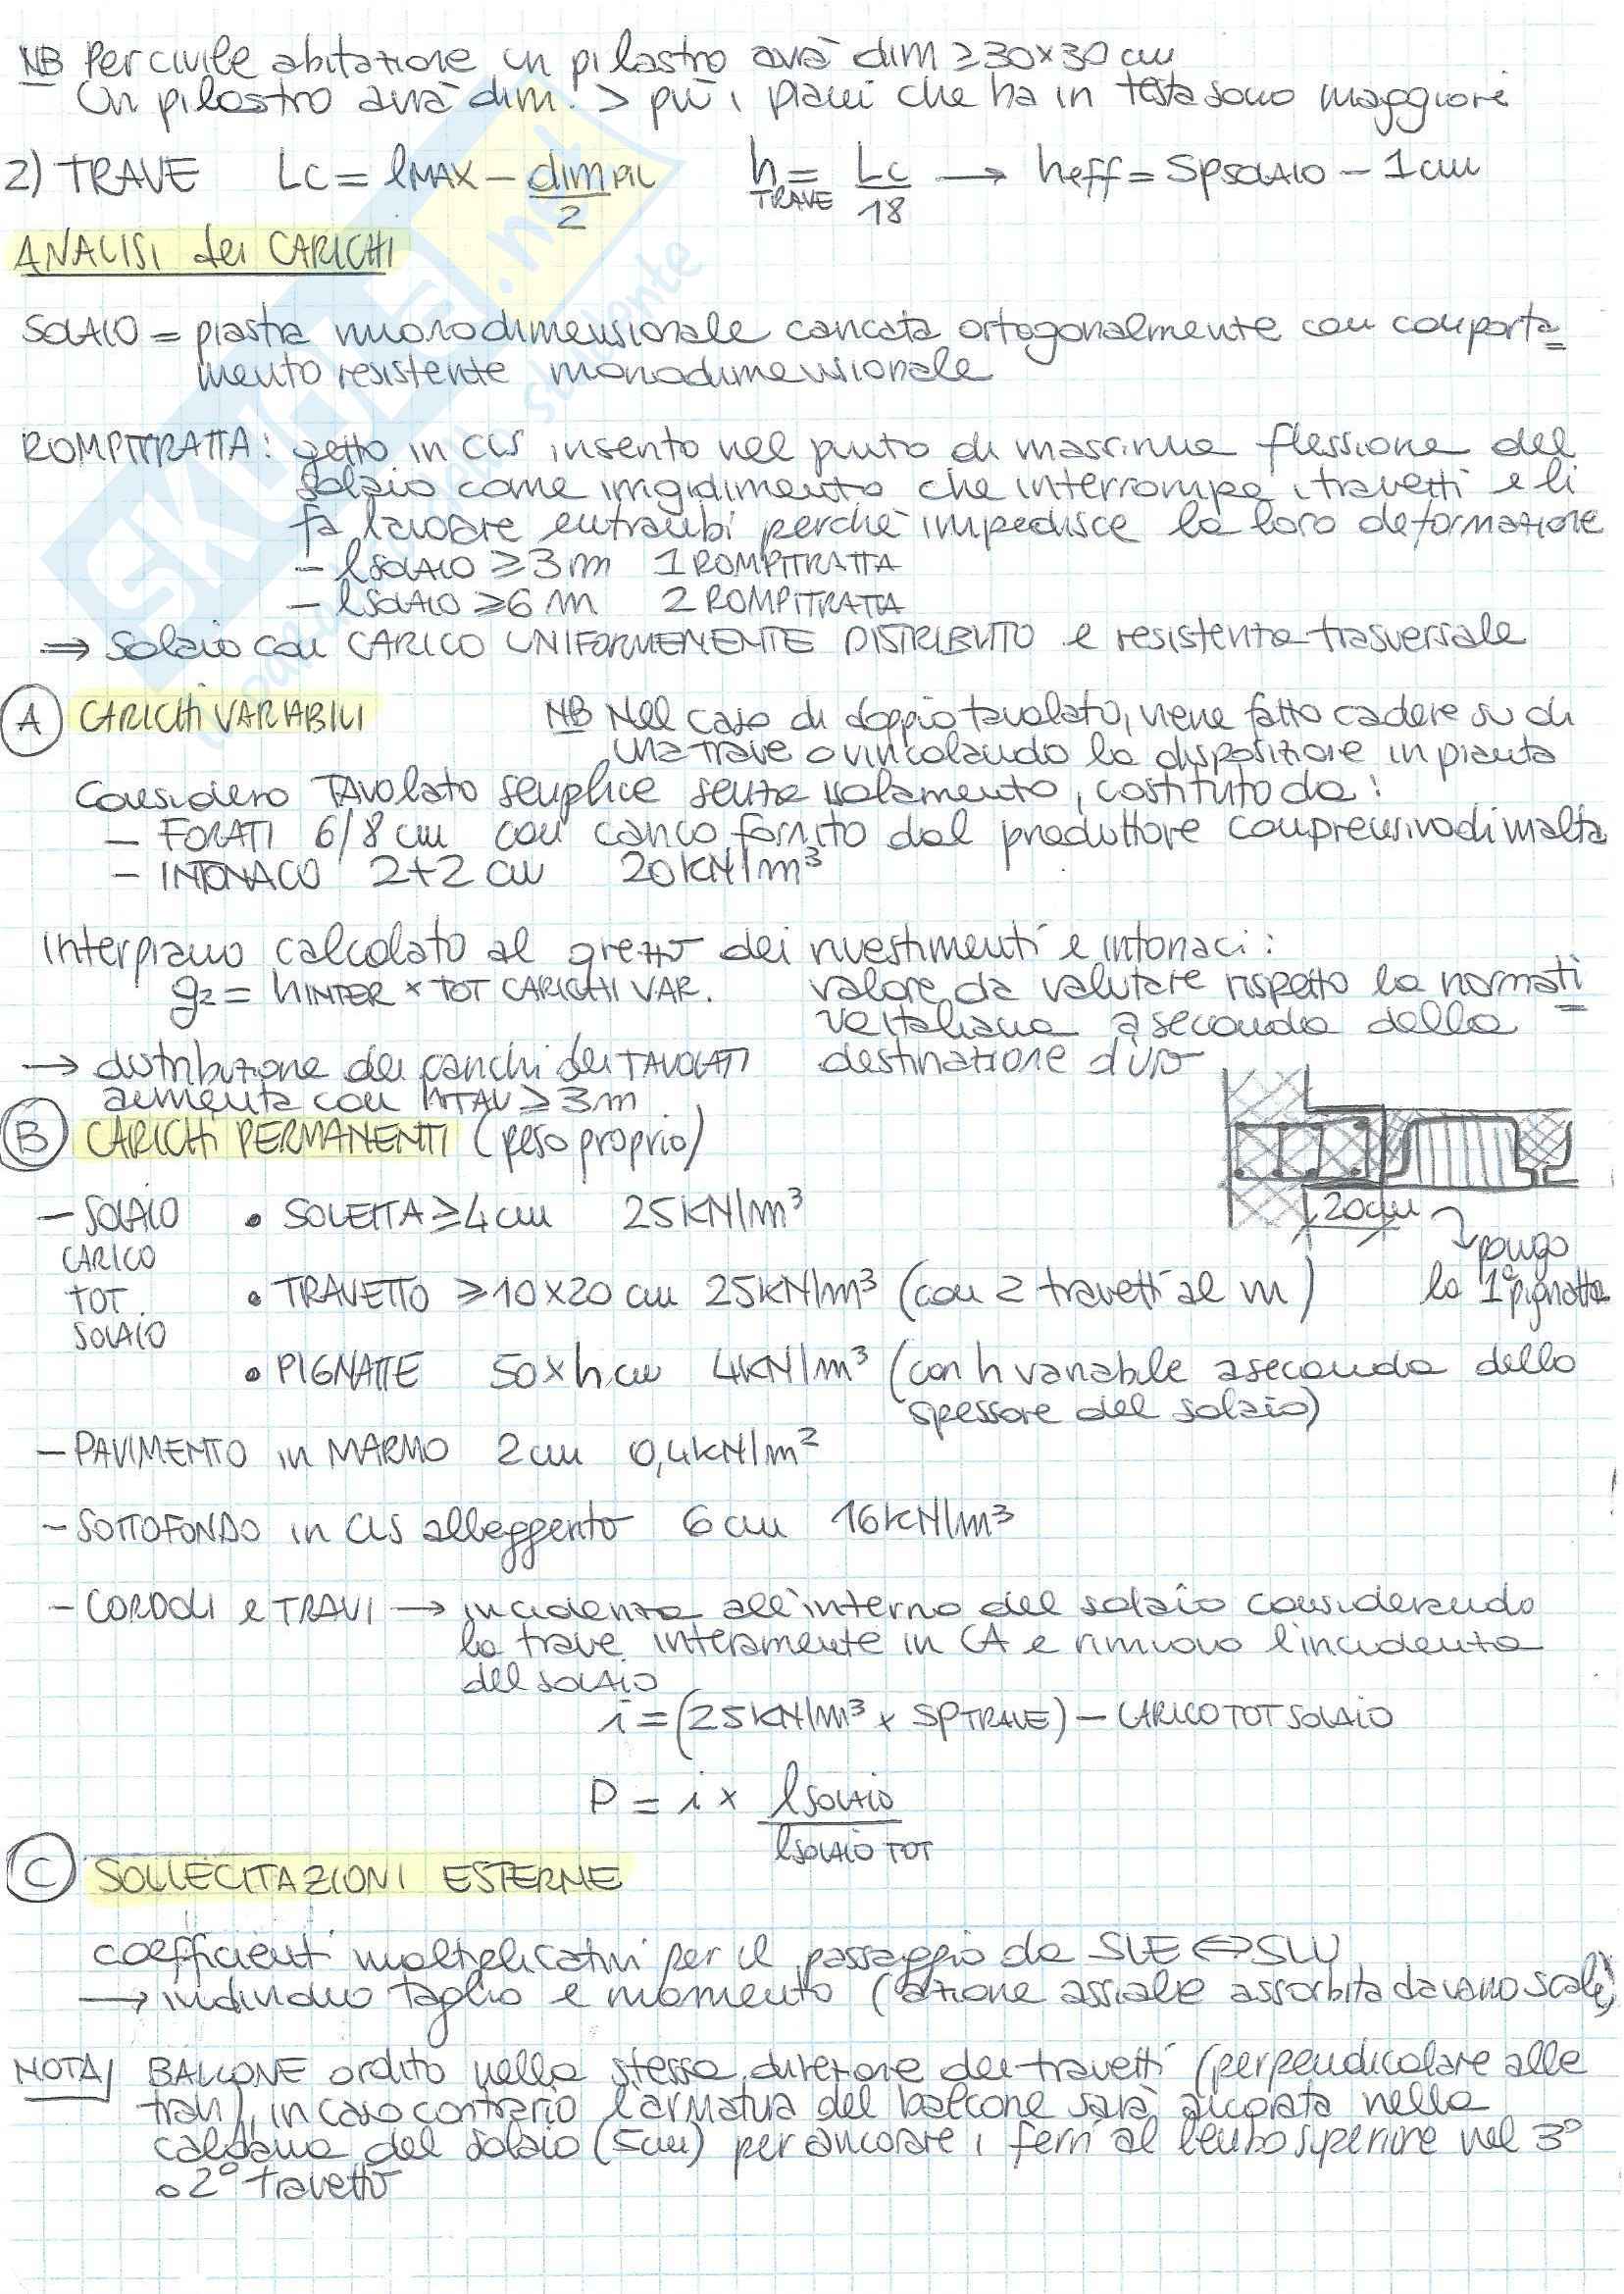 NB Per civile abitazione un pilastro avrà dim ≥ 30×30 cm
Un pilastro avrà dim. > più i piani che ha in testa sono maggiori
2) TRAVE Lc = lMAX - dimPIL/2 hTRAVE = Lc/18 → heff = SpSOLAIO - 1 cm
ANALISI dei CARICHI
SOLAIO = piastra monodimensionale caricata ortogonalmente con comporta=
mento resistente monodimensionale
ROMPITRATTA: getto in CLS inserito nel punto di massima flessione del
solaio come irrigidimento che interrompe i travetti e li
fa lavorare entrambi perchè impedisce la loro deformazione
- lSOLAIO ≥ 3 m 1 ROMPITRATTA
- lSOLAIO ≥ 6 m 2 ROMPITRATTA
⇒ Solaio con CARICO UNIFORMEMENTE DISTRIBUITO e resistenza trasversale
A CARICHI VARIABILI
NB Nel caso di doppio tavolato, viene fatto cadere su di
una trave o vincolando la disposizione in pianta
Considero TAVOLATO semplice senza isolamento, costituto da:
- FORATI 6/8 cm con carico fornito dal produttore comprensivo di malta
- INTONACO 2+2 cm 20 KN/m³
Interpiano calcolato al grezzo dei rivestimenti e intonaci:
g2 = hINTER × TOT CARICHI VAR. valore da valutare rispetto la normati=
va italiana a seconda della
destinazione d'uso
→ distribuzione dei carichi dei TAVOLATI
aumenta con hTAV ≥ 3 m
B CARICHI PERMANENTI (peso proprio)
20cm
pongo
la 1° pignatta
- SOLAIO • SOLETTA ≥ 4 cm 25 KN/m³
CARICO
TOT.
SOLAIO
• TRAVETTO ≥ 10×20 cm 25 KN/m³ (con 2 travetti al m)
• PIGNATTE 50×h cm 4 KN/m³ (con h variabile a seconda dello
spessore del solaio)
- PAVIMENTO in MARMO 2 cm 0,4 KN/m²
- SOTTOFONDO in CLS alleggerito 6 cm 16 KN/m³
- CORDOLI e TRAVI → incidenza all'interno del solaio considerando
la trave interamente in CA e rimuovo l'incidenza
del SOLAIO
i = (25 KN/m³ × SpTRAVE) - CARICO TOT SOLAIO
P = i × lSOLAIO/lSOLAIO TOT
C SOLLECITAZIONI ESTERNE
coefficienti moltiplicativi per il passaggio da SLE ⇔ SLU
→ individuo taglio e momento (azione assiale assorbita da vano scale)
NOTA/ BALCONE ordito nella stessa direzione dei travetti (perpendicolare alle
travi), in caso contrario l'armatura del balcone sarà ancorata nella
caldana del solaio (5cm) per ancorare i ferri al lembo superiore nel 3°
o 2° travetto
SKUOLA.net